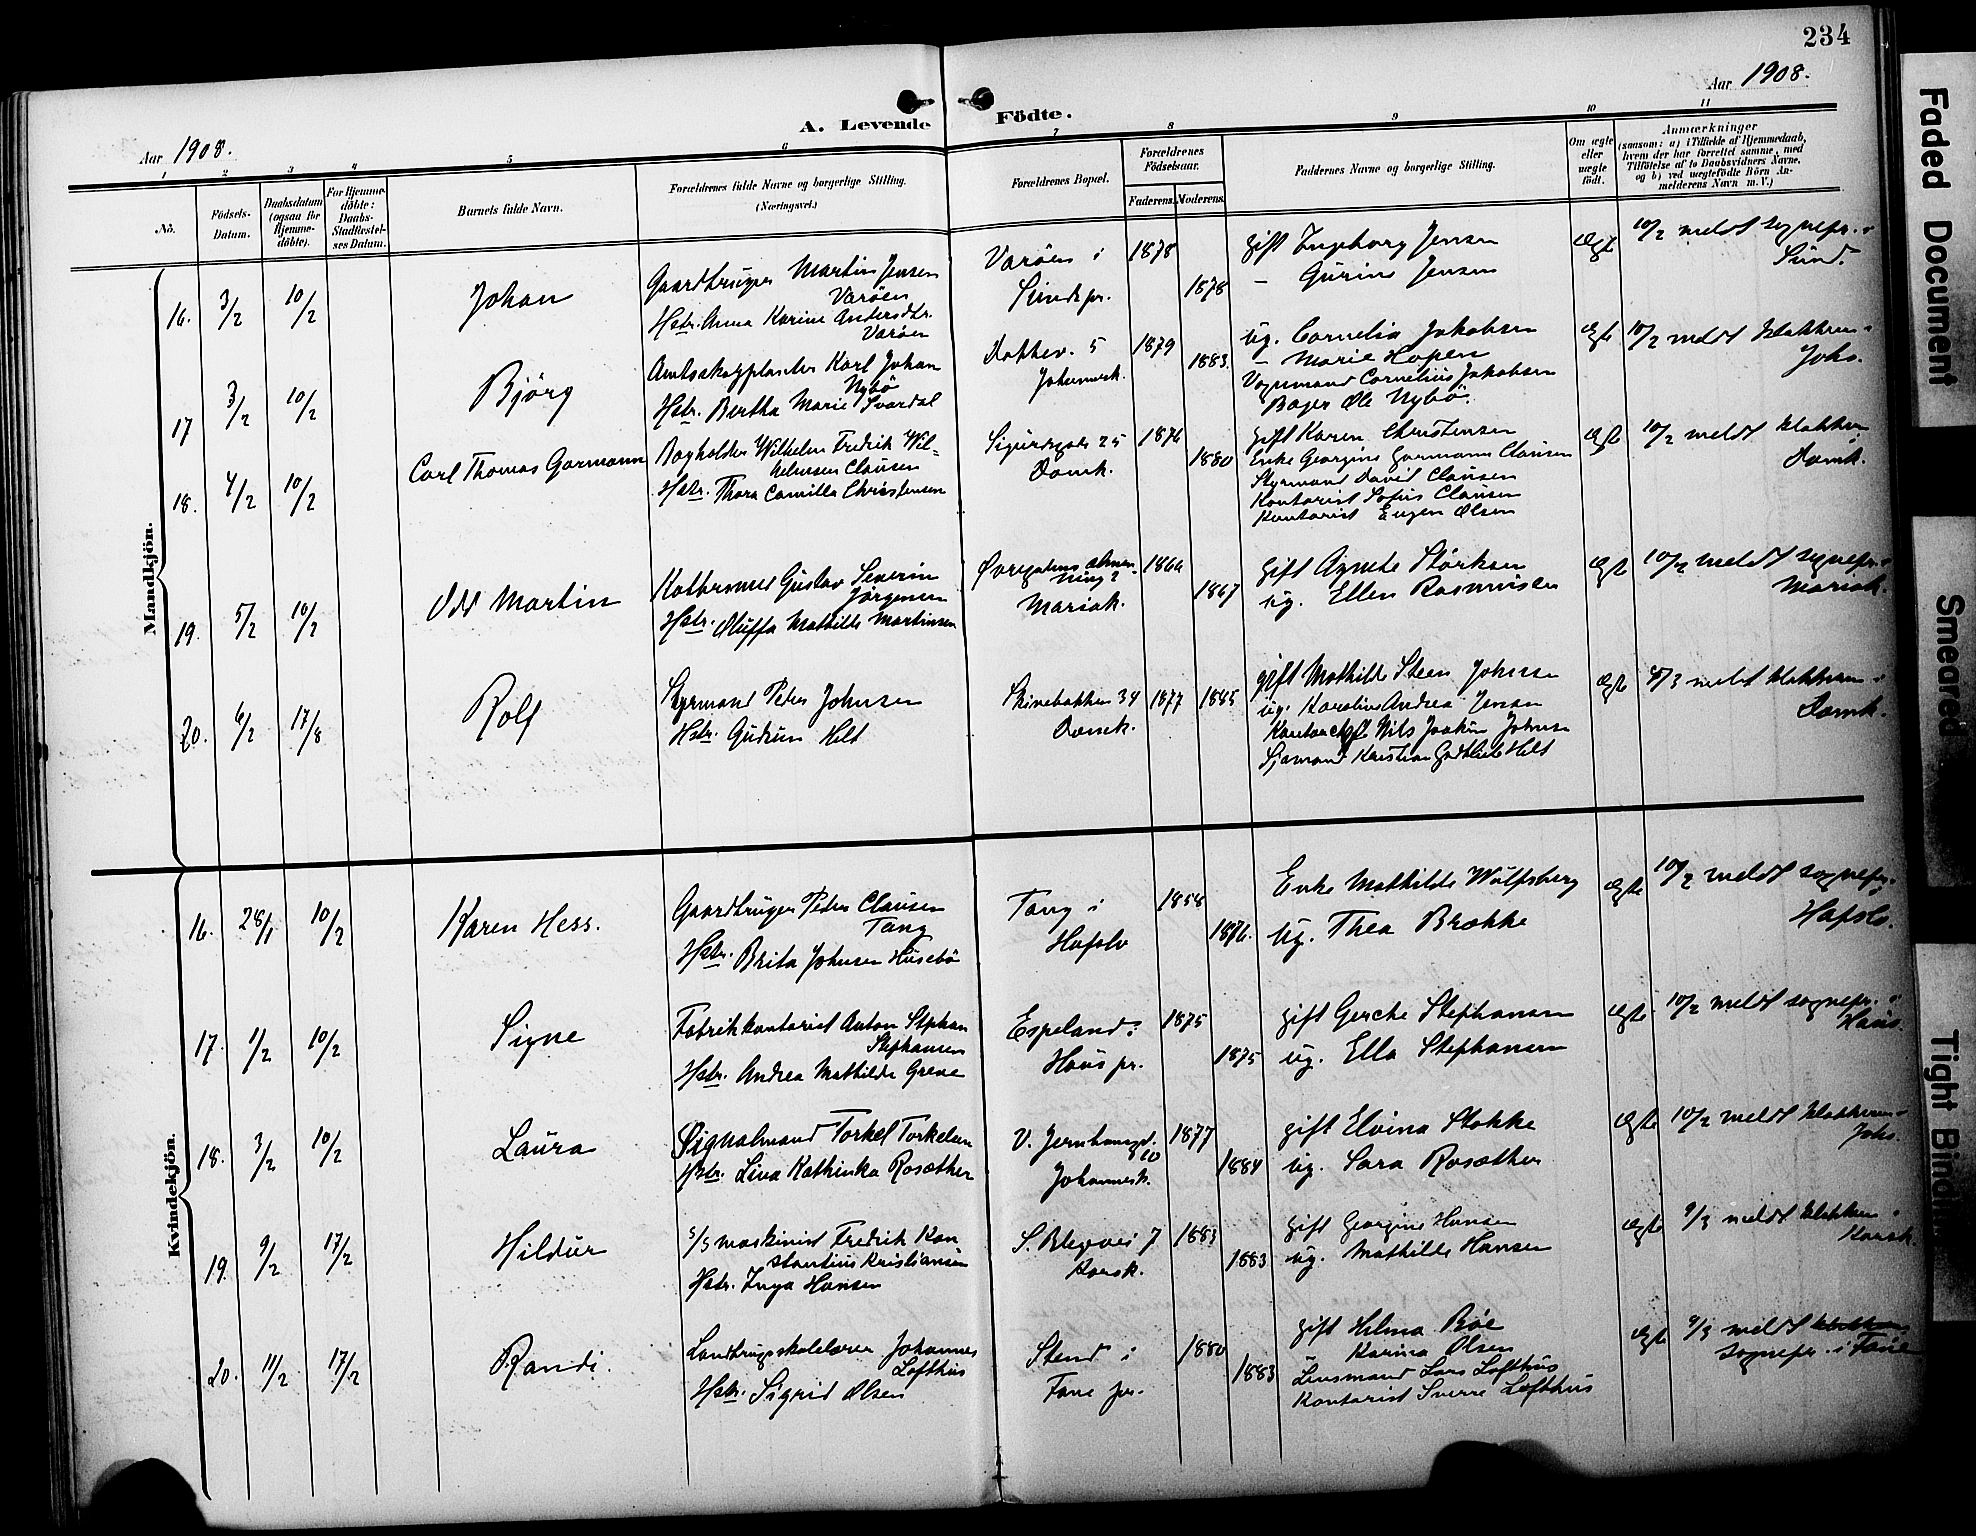 234
Aar 1908.
Aar 1908.
A. Levende Födte.
1 2 3 4 5 6 7 8 9 10 11
No.
Födsels-
Datum.
Daabsdatum
(ogsaa for
Hjemme-
döbte).
For Hjemme-
döbte:
Daabs-
Stadfæstel-
ses Datum.
Barnets fulde Navn.
Forældrenes fulde Navne og borgerlige Stilling.
(Næringsvei.)
Forældrenes Bopæl.
Forældrenes
Födselsaar.
Faderens.
Moderens.
Faddernes Navne og borgerlige Stilling.
Om ægte
eller
uægte
födt.
Anmærkninger
(saasom: a) i Tilfælde af Hjemmedaab,
hvem der har forrettet samme, med
Tilföielse af to Daabsvidners Navne,
og b) ved uægtefödte Börn An-
melderens Navn m. V.)
Mandkjön.
16. 3/2 10/2
Johan
Gaardbruger Martin Jensen
Varöen
Hstr. Anna Karine Andersdtr.
Varöen
Varöen i
Sunds pr.
1878
1878
gift Ingeborg Jensen
– Gurine Jensen
ægte
10/2 meldt sognepr. i
Sund.
17 3/2 10/2
Björg
Amtsskogplanter Karl Johan
Nybö
Hstr. Bertha Marie Svardal
5
Johannesk.
1879
1883.
ug. Cornelia Jakobsen
– Marie Hopen
Vognmand Cornelius Jakobsen
Bager Ole Nybö.
ægte
10/2 meldt klokkeren i
Johs.
18. 4/2 10/2
Carl Thomas Garmann
Bogholder Wilhelm Fredrik Wil-
helmsen Clausen
Hstr. Thora Camilla Christensen
Sigurdsgade 25
Domk.
1876
1880
gift Karen Christensen
Enke Georgine Garmann Clausen
Styrmand David Clausen
Kontorist Sofus Clausen
Kontorist Eugen Olsen
ægte
10/2 meldt klokkeren i
Domk.
19. 5/2 10/2
Odd Martin
Gustav Severin
Jörgensen
Hstr. Oluffa Mathilde Martinsen
Øvregadens almen-
ning 2
Mariak.
1866
1867
gift Agnete Störksen
ug. Ellen Rasmussen
ægte
10/2 meldt sognepr. i
Mariak.
20. 6/2 17/8
Rolf
Styrmand Peter Johnsen
Hstr. Gudrun Helt
Skivebakken 34
Domk.
1877
1885
gift Mathilde Steen Johnsen
ug. Karoline Andrea Jensen
Nils Joakim Johnsen
Sjömand Kristian Gottlieb Helt
ægte
meldt klokkeren i
Domk.
Kvindekjön.
16. 28/1 10/2
Karen Hess.
Gaardbruger Peder Clausen
Tang
Hstr. Brita Johnsen Husebö
Tang i
Hafslo
1858
1876.
Enke Mathilde Wulfsberg
ug. Thea Brække
ægte
10/2 meldt sognepr. i
Hafslo.
17. 1/2 10/2
Signe
Fabrikkontorist Anton Stphan
Stephansen
Hstr. Andrea Mathilde Greve
Espeland i
Haus pr.
1875
1875
gift Gerche Stephansen
ug. Ella Stephansen
ægte
10/2 meldt sognepr. i
Haus.
18. 3/2 10/2
Laura
Signalmand Torkel Torkelsen
Hstr. Lina Kathinka Rosæther
V. Jernbanegd.
Johannesk.
1877
1884
gift Elvina Stokke
ug. Sara Rosæther
ægte
10/2 meldt klokkeren i
Johs.
19. 9/2 17/2
Hildur
S/S maskinist Fredrik Kon
stantius Kristiansen
Hstr. Inga Hansen
S. Blegevei 7
Korsk.
1883
1883
gift Georgine Hansen
ug. Mathilde Hansen
ægte
9/3 meldt klokkeren i
Korsk.
20. 11/2 17/2
Randi.
Landbrugsskolelærer Johannes
Lofthus
Hstr. Sigrid Olsen
Stend i
Fane pr.
1880
1883
gift Helma Böe
Karina Olsen
Lensmand Lars Lofthus
Kontorist Sverre Lofthus
ægte
9/3 meldt klokkeren
sognepr. i Fane
Faded Document
Smeared
Tight Bindin